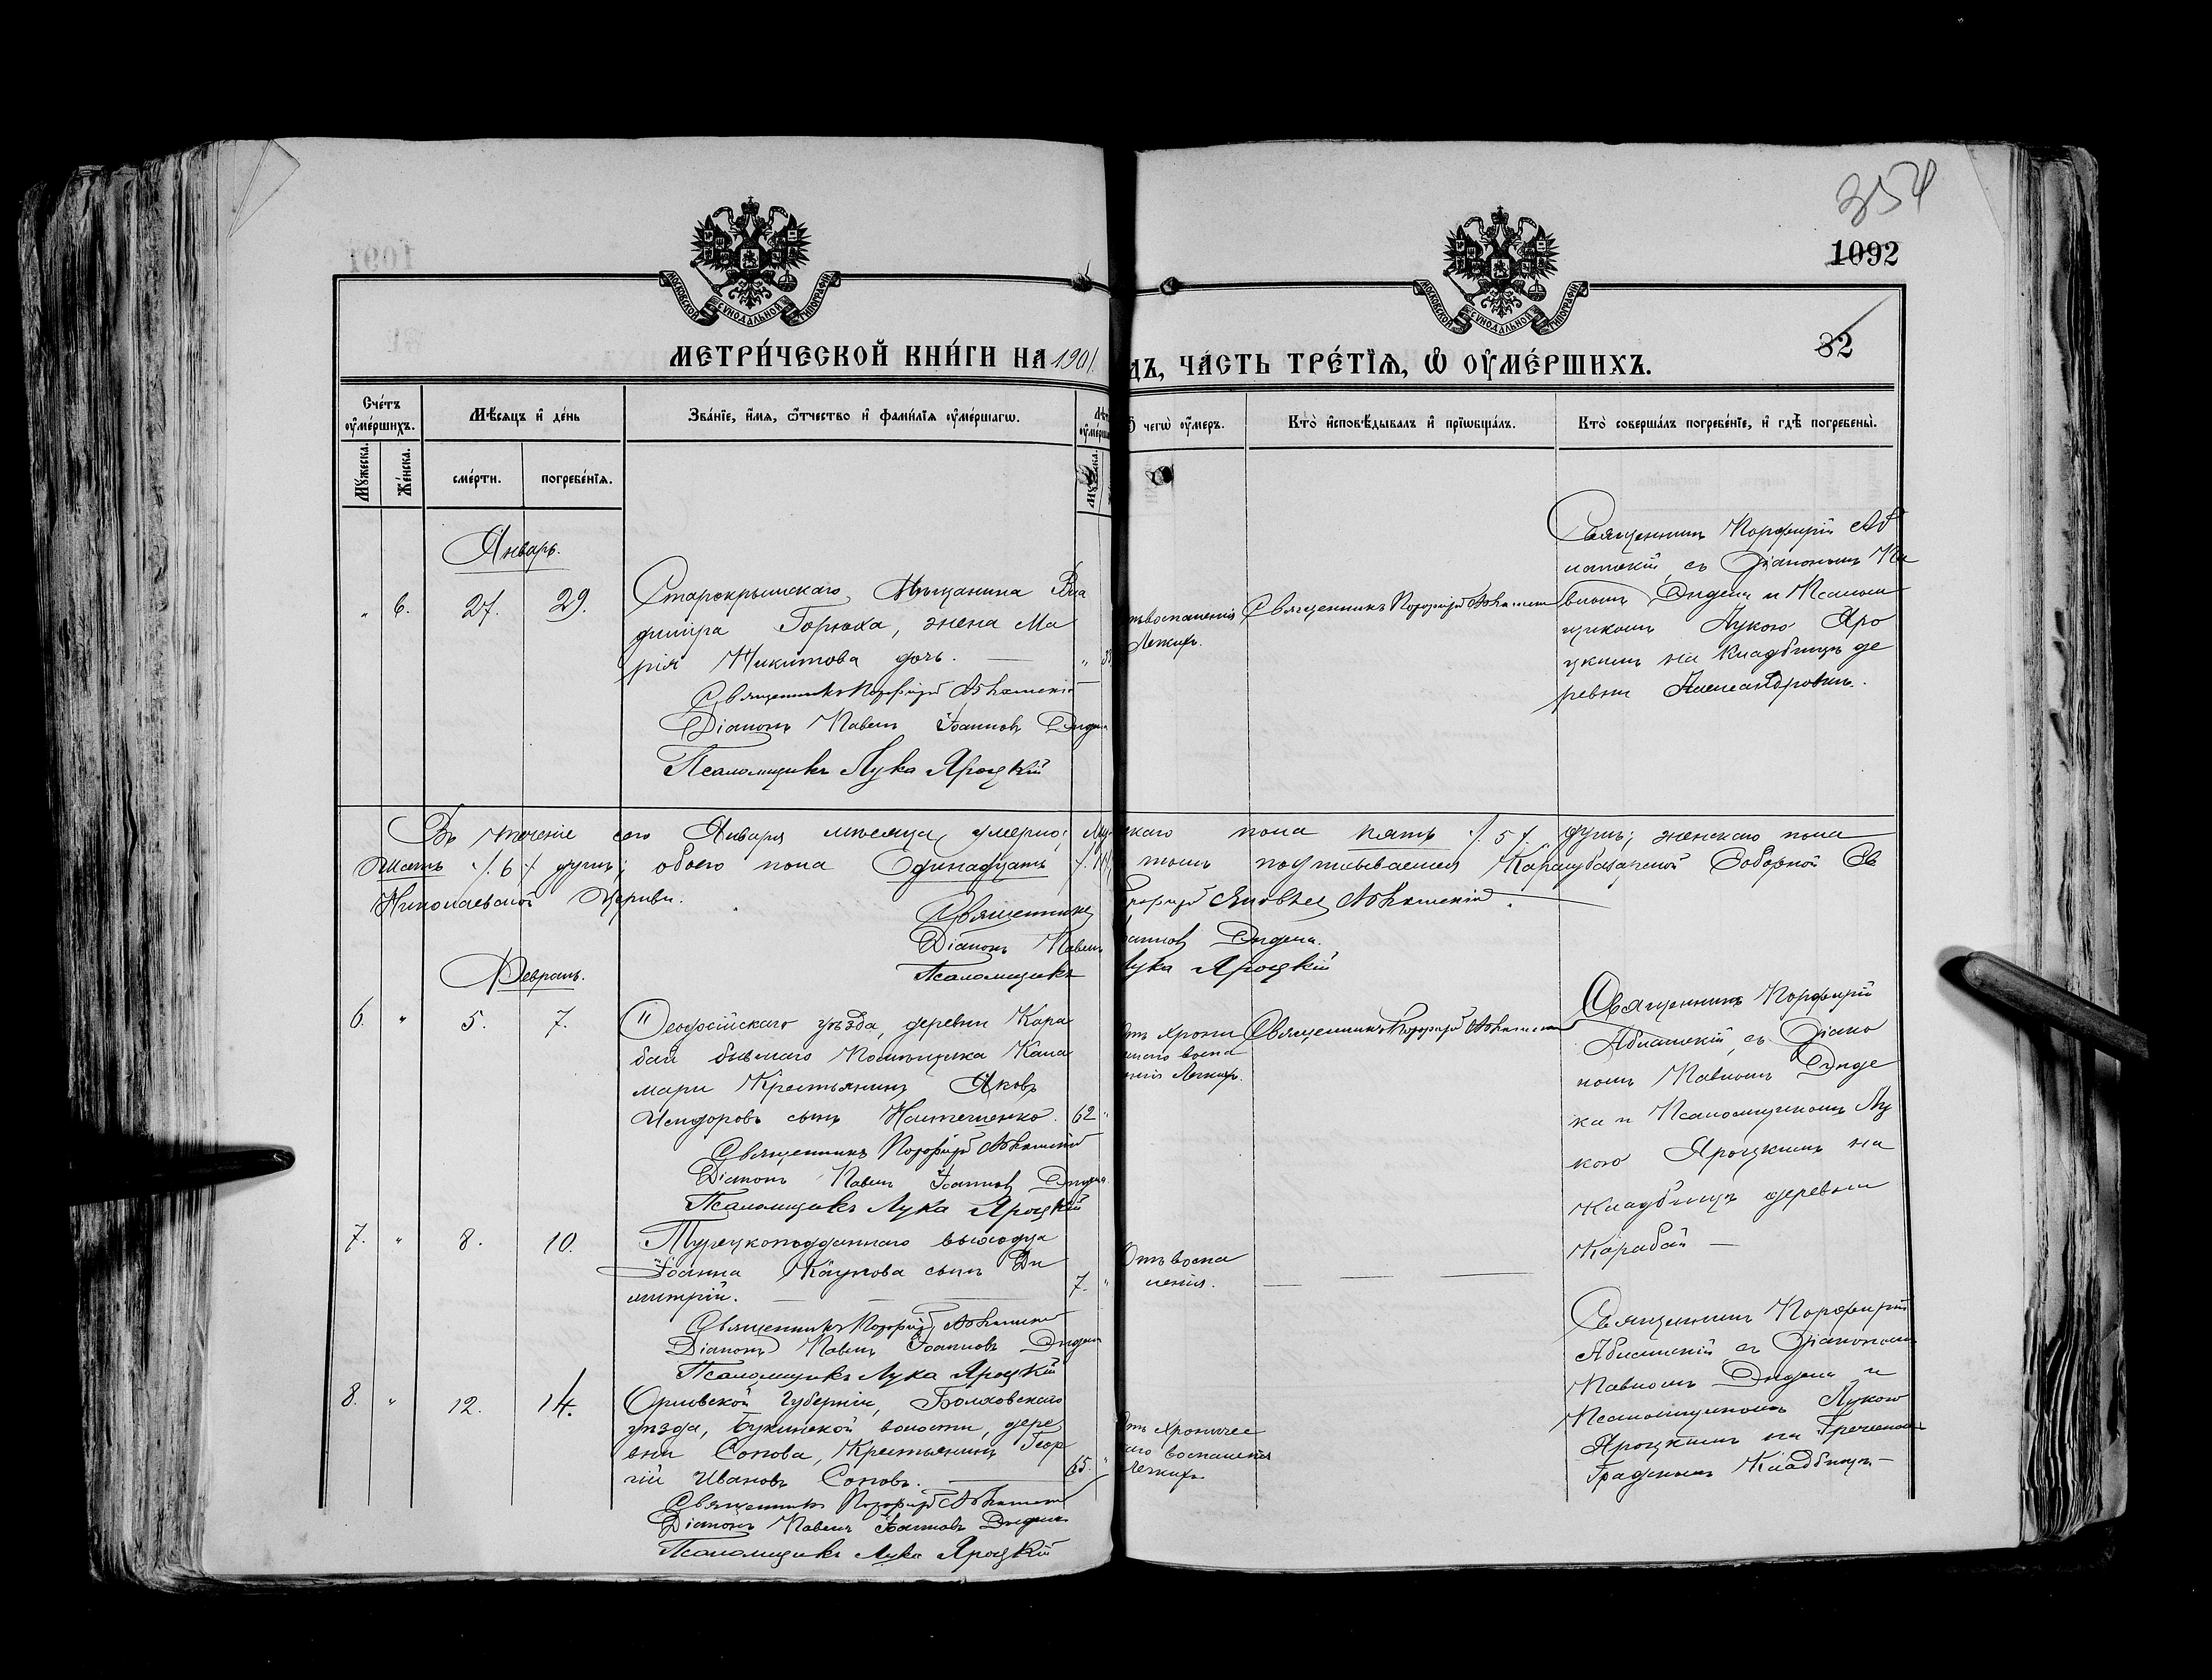 354
1092
82
МОСКОВСКОЙ СѴНОДАЛЬНОЙ ТИПОГРАФІИ
МОСКОВСКОЙ СѴНОДАЛЬНОЙ ТИПОГРАФІИ
МЕТРИ́ЧЕСКОЙ КНИ́ГИ НА 1901
ДЪ, ЧА́СТЬ ТРЕ́ТІѦ, Ѡ҆ ОУ҆МЕ́РШИХЪ.
Сче́тъ оу҆ме́ршихъ.
Мꙋ́жеска.
Же́нска.
Мѣ́сяцъ и҆ де́нь
сме́рти.
погребе́нїѧ.
Зва́нїе, и҆́мѧ, ѻ҆́тчество и҆ фами́лїѧ оу҆ме́ршагѡ.
чегѡ̀ оу҆́меръ.
Кто̀ и҆сповѣ́дывалъ и҆ прїѡбща́лъ.
Кто̀ соверша́лъ погребе́нїе, и҆ гдѣ̀ погребены̀.
Январь.
" 6. 27. 29.
Старокрымскаго Мѣщанина Вла
диміра Горюха, жена Ма
рія Никитова дочь.
Священникъ Порфирій
Діаконъ Павелъ Іоанновъ
Псаломщикъ Лука Яроцкій
воспаленія
Легкихъ.
Священникъ Порфирій
Священникъ Порфирій Аб
съ Діакономъ Па
вломъ и Псалом
щикомъ Лукою Яро
цкимъ на Кладбищѣ де
ревни Александровки.
Въ теченіе сего Января мѣсяца умерло: му
скаго пола пять /.5/. душъ; женскаго пола
шесть /.6/. душъ; обоего пола Одинадцать
томъ подписываемся Карасубазарской Соборной Св
Николаевской Церкви.
Священникъ
Порфирій Яковлев
Діаконъ Павелъ
Іоанновъ
Псаломщикъ
Лука Яроцкій
Февраль.
6. " 5. 7.
Ѳеодосійскаго уѣзда, деревни Кара
бай бывшаго Помѣщика Кала
мари Крестьянинъ Яковъ
Исидоровъ сынъ 62 "
Священникъ Порфирій
Діаконъ Павелъ Іоанновъ
Псаломщикъ Лука Яроцкій
Отъ Хрони
скаго воспа
ленія Легкихъ.
Священникъ Порфирій
Священникъ Порфирій
съ Діако
номъ Павломъ
и Псаломщикомъ Лу
кою Яроцкимъ на
Кладбищѣ деревни
Карабай
7. " 8. 10.
Турецкоподданнаго выходца
Іоанна сынъ Ди
митрій. 7. "
Священникъ Порфирій
Діаконъ Павелъ Іоанновъ
Псаломщикъ Лука Яроцкій
Отъ воспа
ленія.
Священникъ Порфирій
съ Діакономъ
Павломъ и
Псаломщикомъ Лукою
Яроцкимъ на Греческомъ
Градскомъ Кладбищѣ
8. " 12. 14.
Орловской Губерніи, Болховскаго
уѣзда, волости, дере
вни Сопова, Крестьянинъ Геор
гій Ивановъ Соповъ. 65. "
Священникъ Порфирій
Діаконъ Павелъ Іоанновъ
Псаломщикъ Лука Яроцкій
Отъ Хрониче
скаго воспаленія
Легкихъ